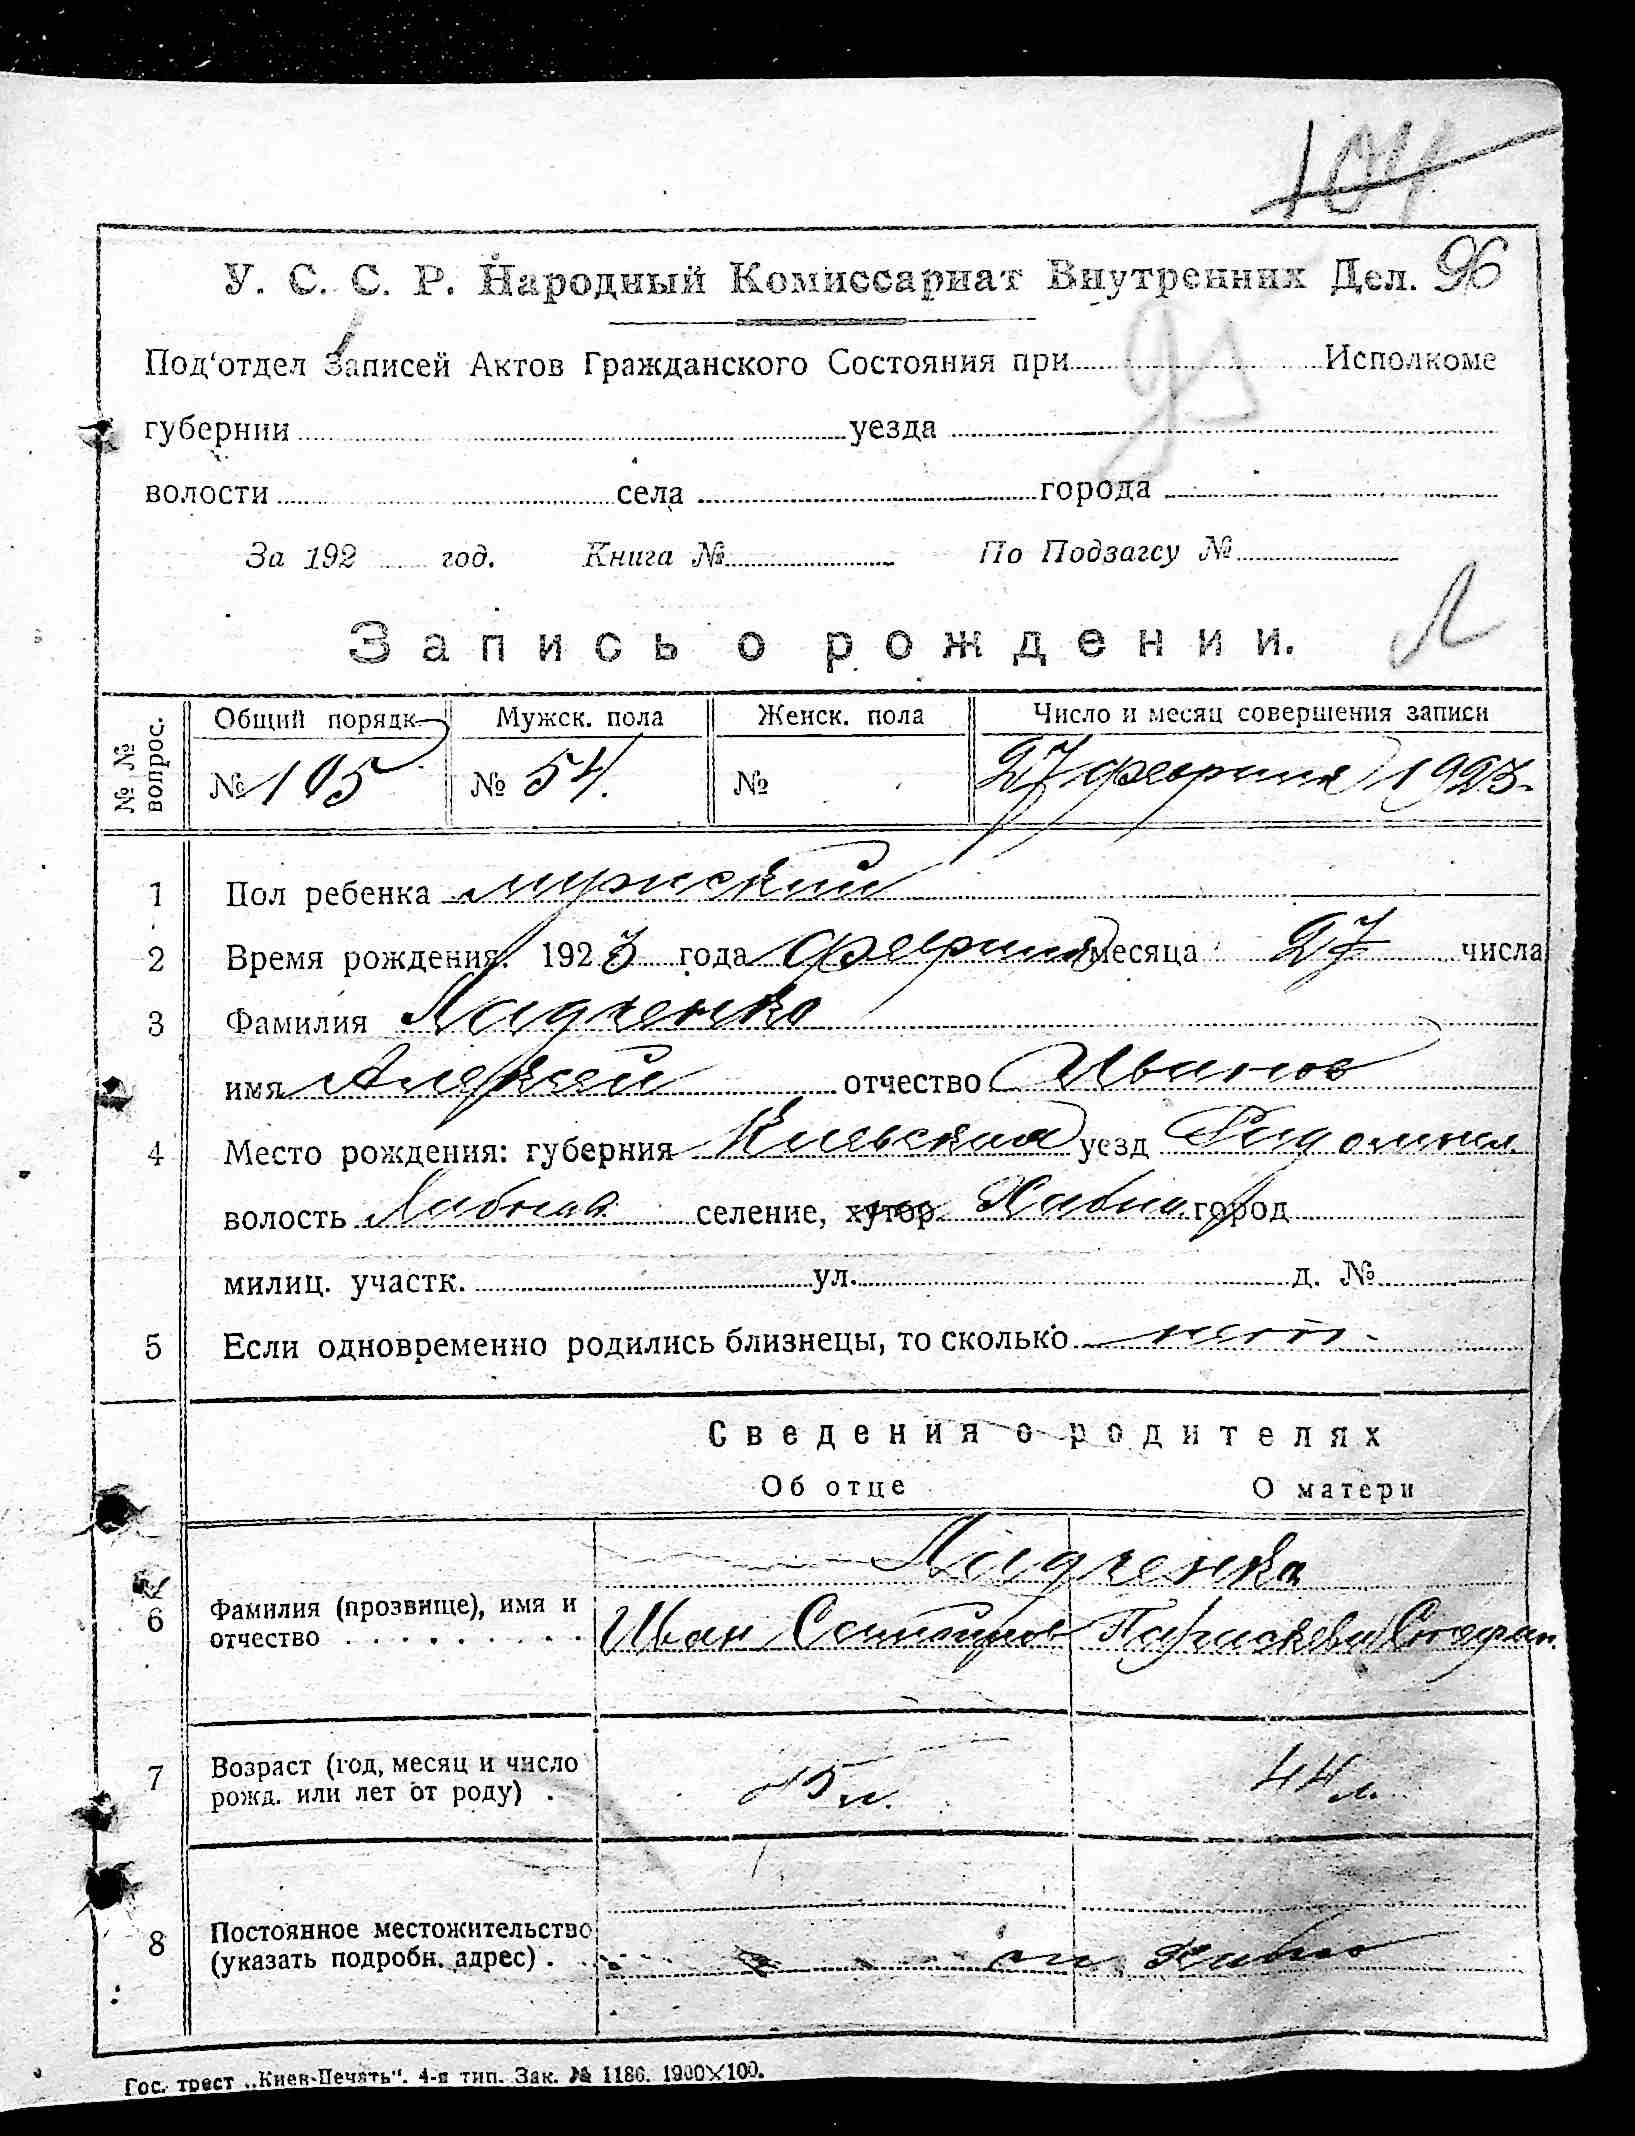 104
У. С. С. Р. Народный Комиссариат Внутренних Дел. 96
Под‘отдел Записей Актов Гражданского Состояния при Исполкоме
губернии уезда
волости села города
За 192 год. Книга № По Подзагсу №
Л
Запись о рождении.
№ № вопрос. Общий порядк. Мужск. пола Женск. пола Число и месяц совершения записи
№ 105 № 54. № 27 февраля 1923.
1 Пол ребенка мужский
2 Время рождения: 1923 года февраля месяца 27 числа
3 Фамилия Ладченко
имя Алексей отчество Иванов
4 Место рождения: губерния Киевская уезд Радомысл.
волость Хабное селение, хутор Хабно город
милиц. участк. ул. д. №
5 Если одновременно родились близнецы, то сколько нет.
Сведения о родителях
Об отце О матери
Ладченко
6 Фамилия (прозвище), имя и отчество Иван Параскева Стефан.
7 Возраст (год, месяц и число рожд. или лет от роду) 44 л.
8 Постоянное местожительство (указать подробн. адрес) м. Хабно
Гос. трест „Киев-Печать“. 4-я тип. Зак. № 1186. 1900×100.